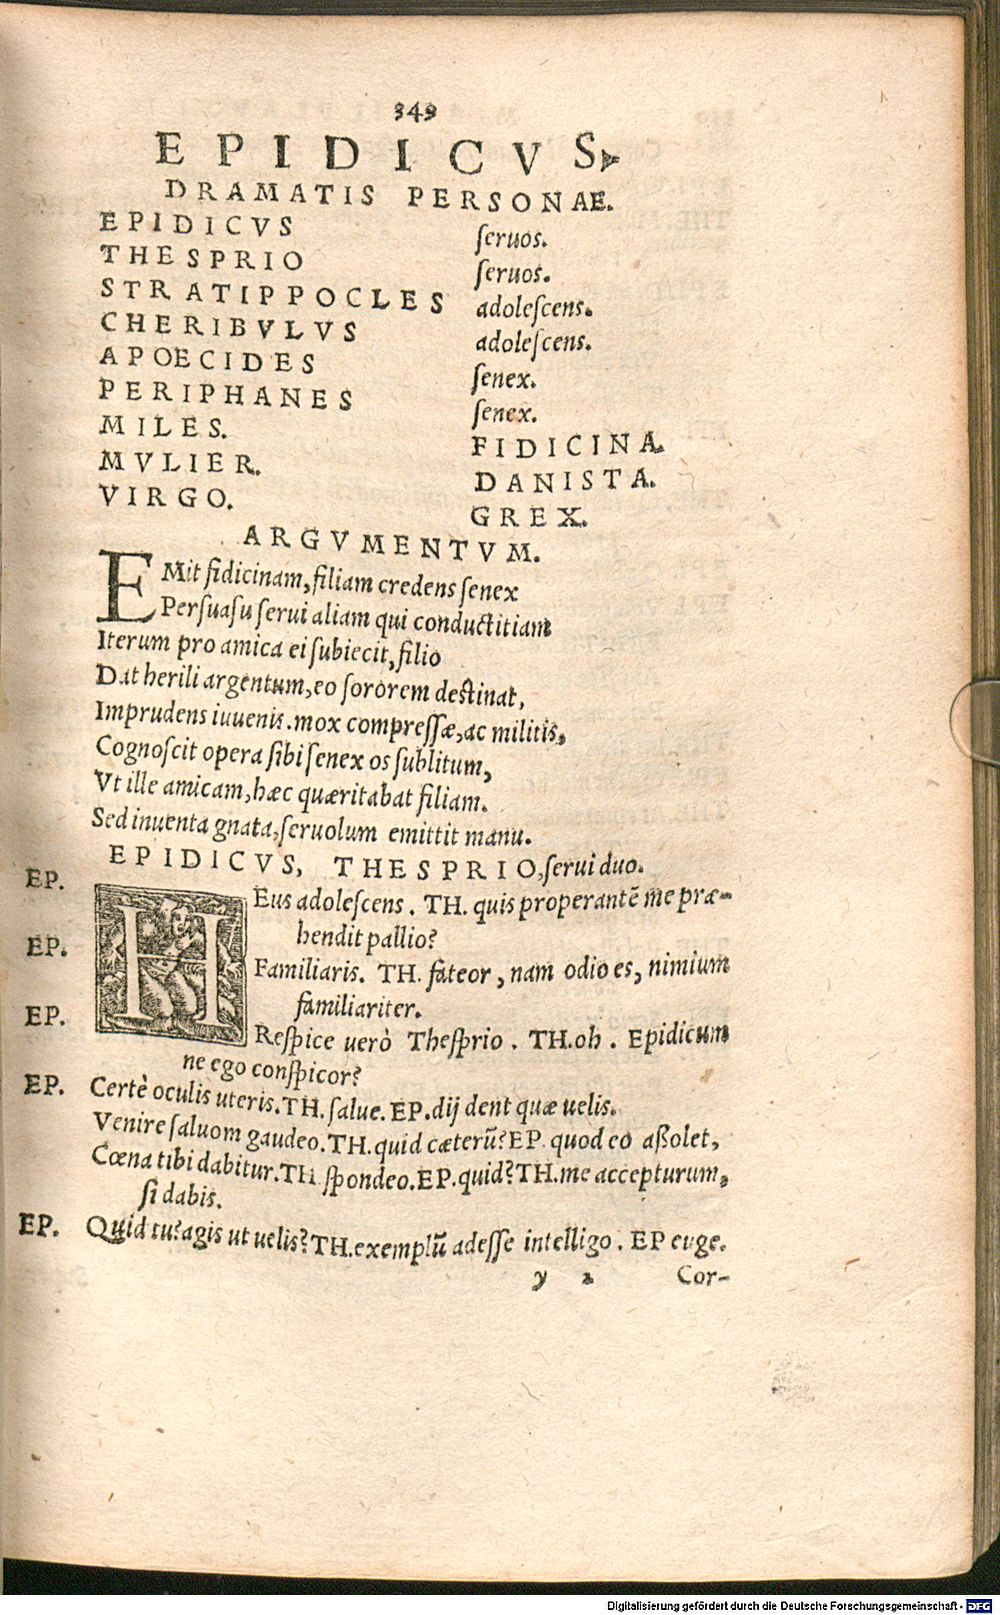 349
EPIDICVS
DRAMATIS PERSONAE.
EPIDICVS ſeruos.
THESPRIO ſeruos.
STRATIPPOCLES adoleſcens.
CHERIBVLVS adoleſcens.
APOECIDES ſenex.
PERIPHANES ſenex.
MILES. FIDICINA.
MVLIER. DANISTA.
VIRGO. GREX.
ARGVMENTVM.
EMit fidicinam, filiam credens ſenex
Perſuaſu ſerui aliam qui conductitiam
Iterum pro amica ei ſubiecit, filio
Dat herili argentum, eo ſororem deſtinat,
Imprudens iuuenis. mox compreſſæ, ac militis,
Cognoſcit opera ſibi ſenex os ſublitum,
Vt ille amicam, hæc quæritabat filiam.
Sed inuenta gnata, ſeruolum emittit manu.
EPIDICVS, THESPRIO, ſerui duo.
EP. HEus adoleſcens. TH. quis properantẽ me præ-
hendit pallio?
EP. Familiaris. TH. fateor, nam odio es, nimium
familiariter.
EP. Reſpice uerò Theſprio. TH. oh. Epidicum
ne ego conſpicor?
EP. Certè oculis uteris. TH. ſalue. EP. dij dent quæ uelis.
Venire ſaluom gaudeo. TH. quid cæterũ? EP. quod eo aßolet,
Cœna tibi dabitur. TH. ſpondeo. EP. quid? TH. me accepturum,
ſi dabis.
EP. Quid tu? agis ut uelis? TH. exemplũ adeſſe intelligo. EP euge.
y 2 Cor-
Digitalisierung gefördert durch die Deutsche Forschungsgemeinschaft - DFG